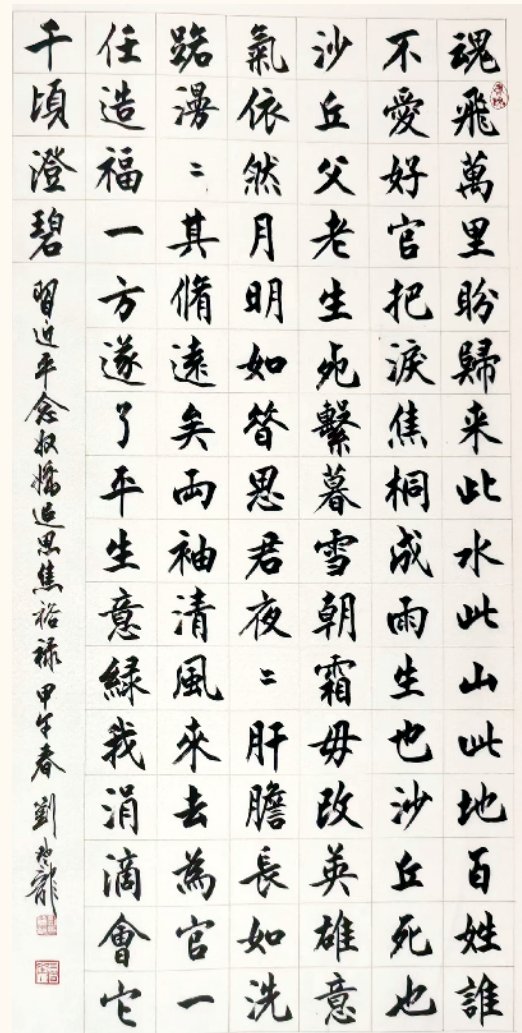 魂飛萬里盼歸来此水此山此地百姓誰
不愛好官把淚焦桐成雨生也沙丘死也
沙丘父老生死繫暮雪朝霜毋改英雄意
氣依然月明如昝思君夜〻肝膽長如洗
路漫〻其脩遠矣兩袖清風來去為官一
任造福一方遂了平生意緑我涓滴會它
千頃澄碧
習近平念奴嬌追思焦裕禄甲午春劉龍